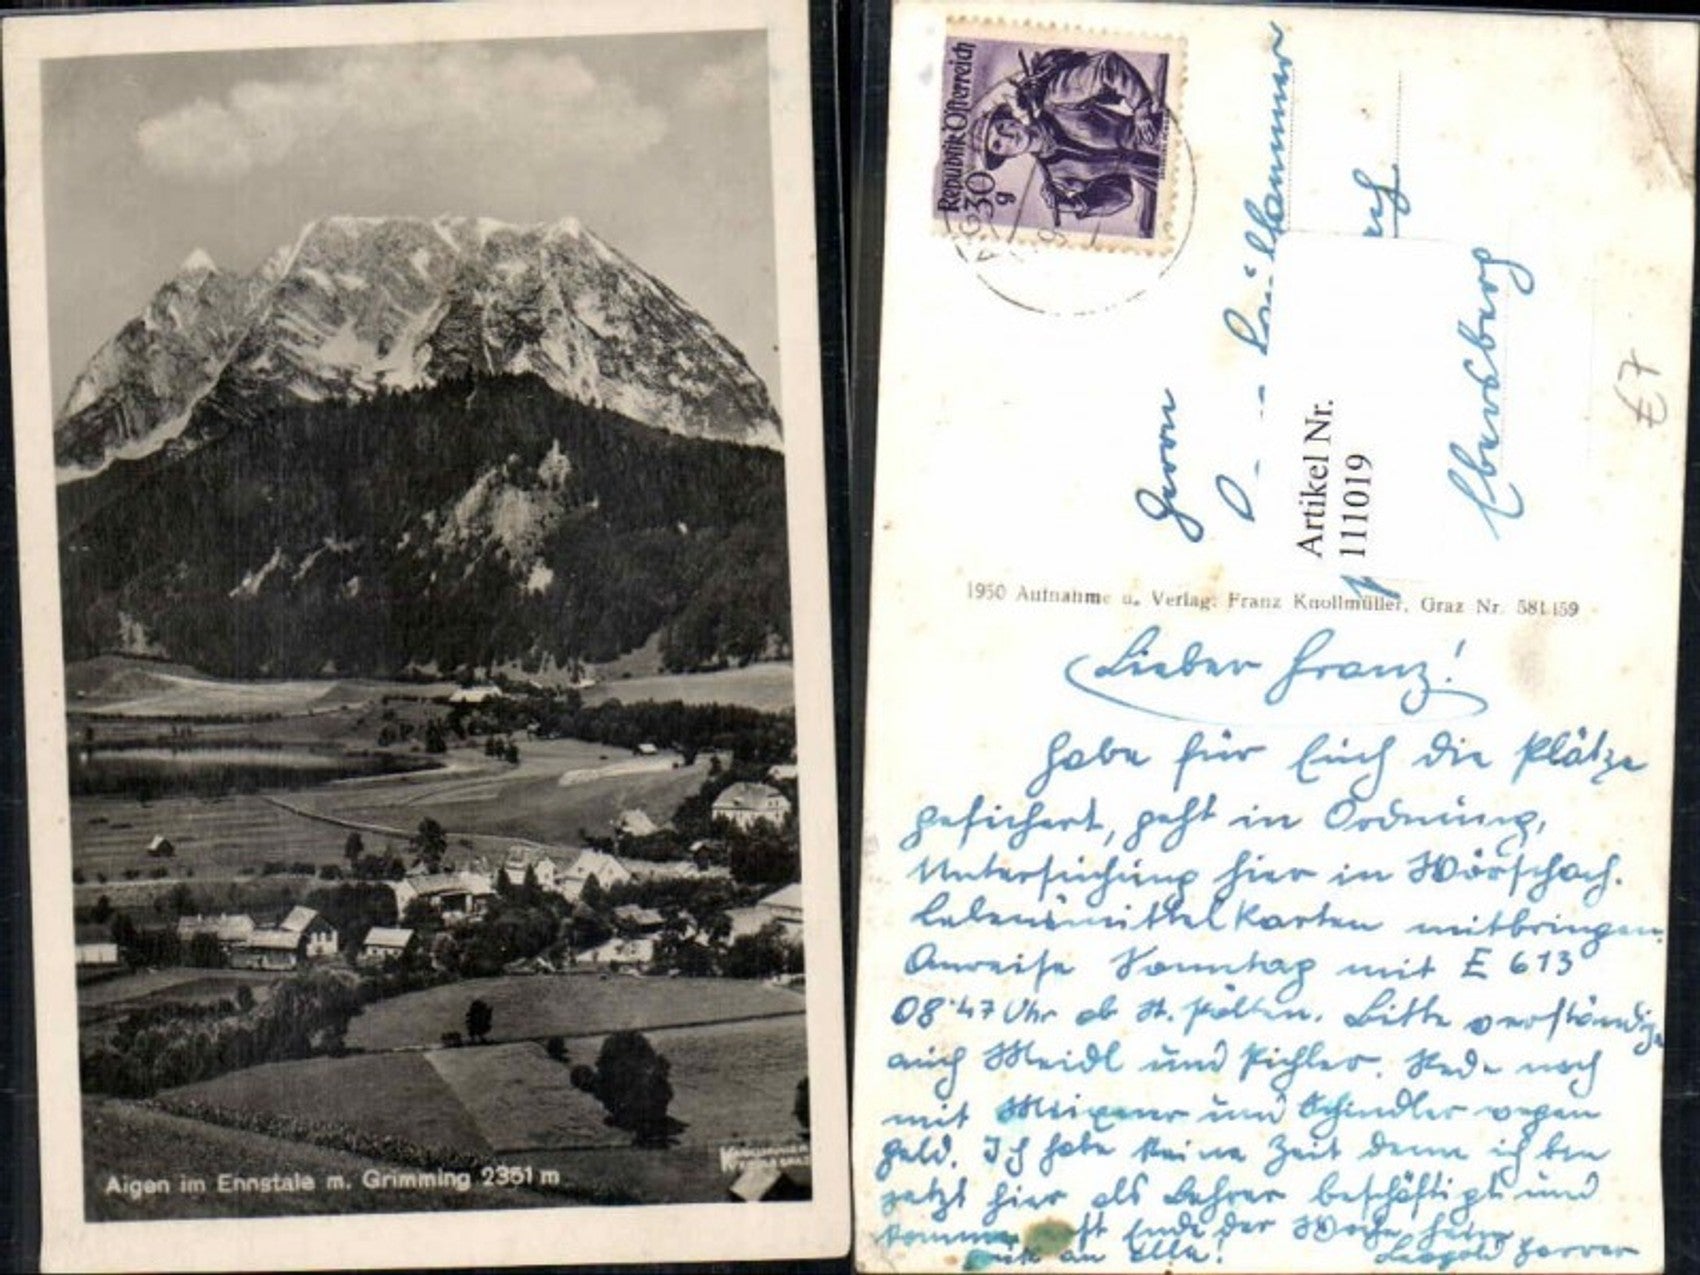 Aigen im Ennstale m. Grimming 2351 m
Republik Österreich
30 g
Herrn
Ebersberg
Artikel Nr.
111019
£7
1950 Aufnahme u. Verlag: Franz Knollmüller, Graz Nr. 581.159
Lieber Franz!
Habe für Euch die Plätze
gesichert, geht in Ordnung,
Untersuchung hier in Wörschach.
Lebensmittelkarten mitbringen.
Anreise Sonntag mit E 613
08·47 Uhr ab St. Pölten. Bitte verständige
auch Meidl und Pichler. Rede noch
mit und Schindler wegen
Geld. Ich habe keine Zeit denn ich bin
jetzt hier als Lehrer beschäftigt und
komme Ende der Woche heim
an Elle! Leopold